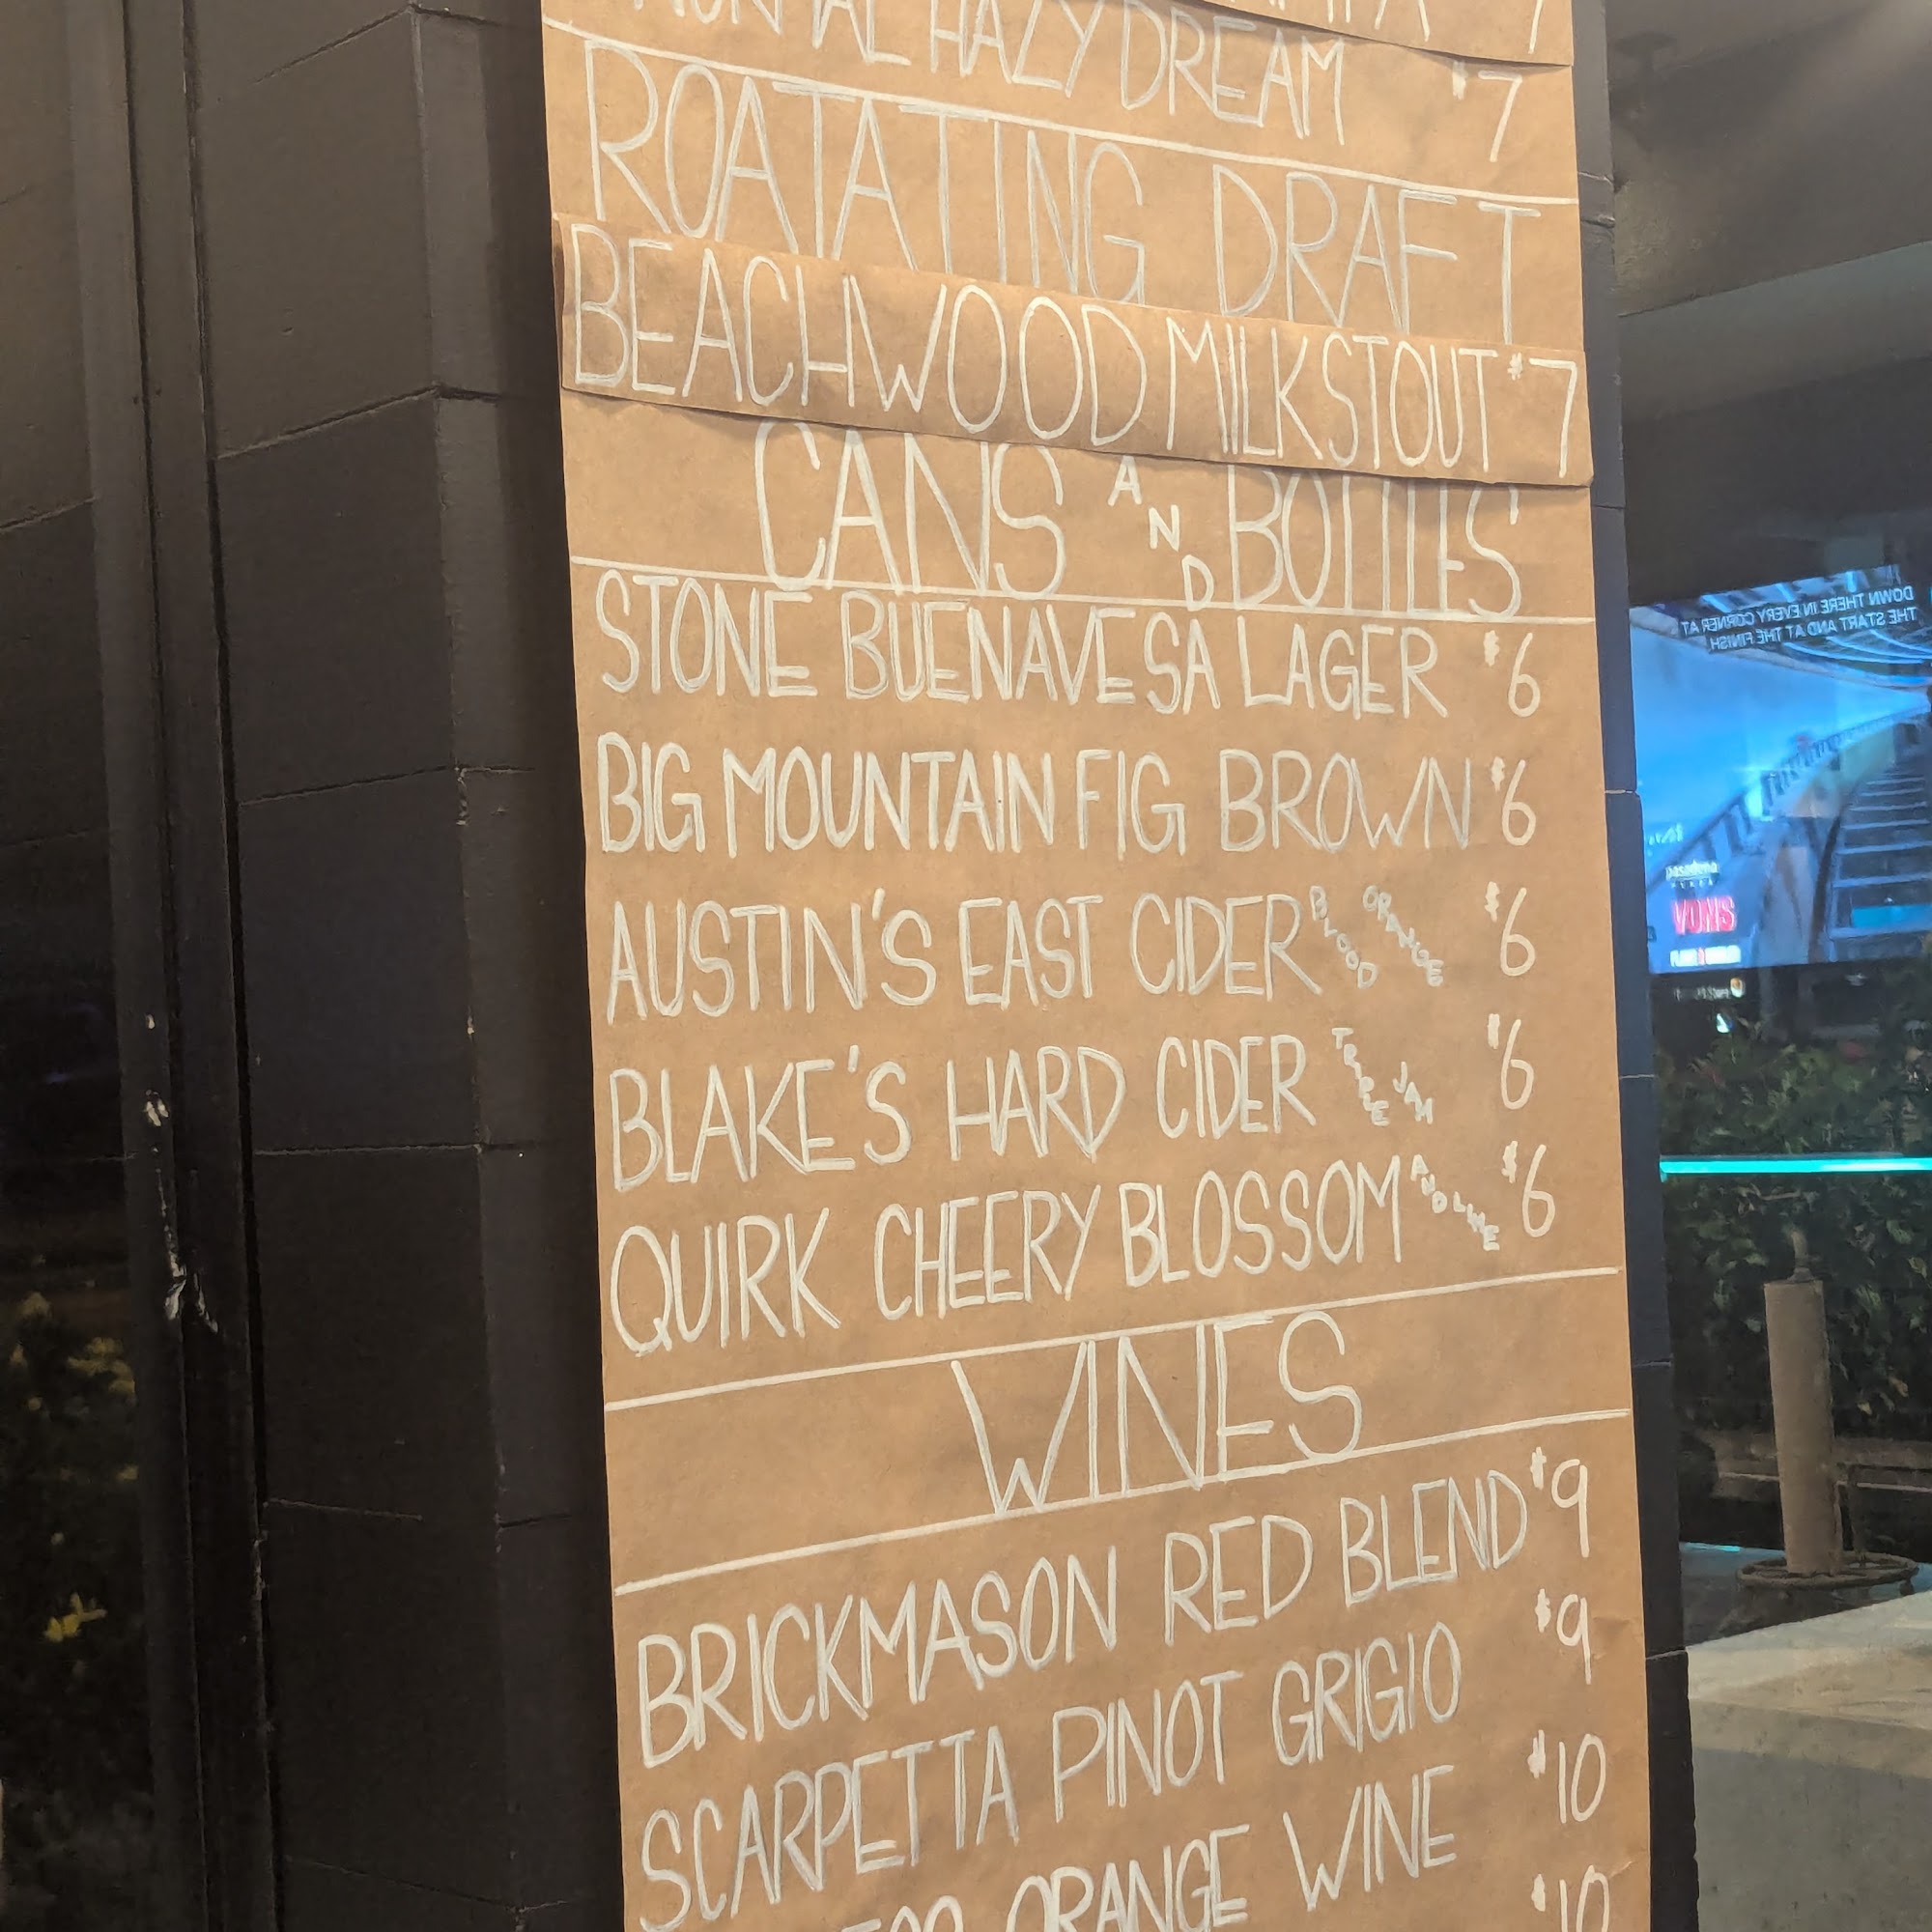 HAZY DREAM $7
ROATATING DRAFT
BEACHWOOD MILK STOUT $7
CANS AND BOTTLES
STONE BUENAVESA LAGER $6
BIG MOUNTAIN FIG BROWN $6
AUSTIN'S EAST CIDER BLOOD ORANGE $6
BLAKE'S HARD CIDER TRIPLE JAM $6
QUIRK CHEERY BLOSSOM AND LIME $6
WINES
BRICKMASON RED BLEND $9
SCARPETTA PINOT GRIGIO $9
ORANGE WINE $10
$10
DOWN THERE IN EVERY CORNER AT
THE START AND AT THE FINISH
pasadena
VONS